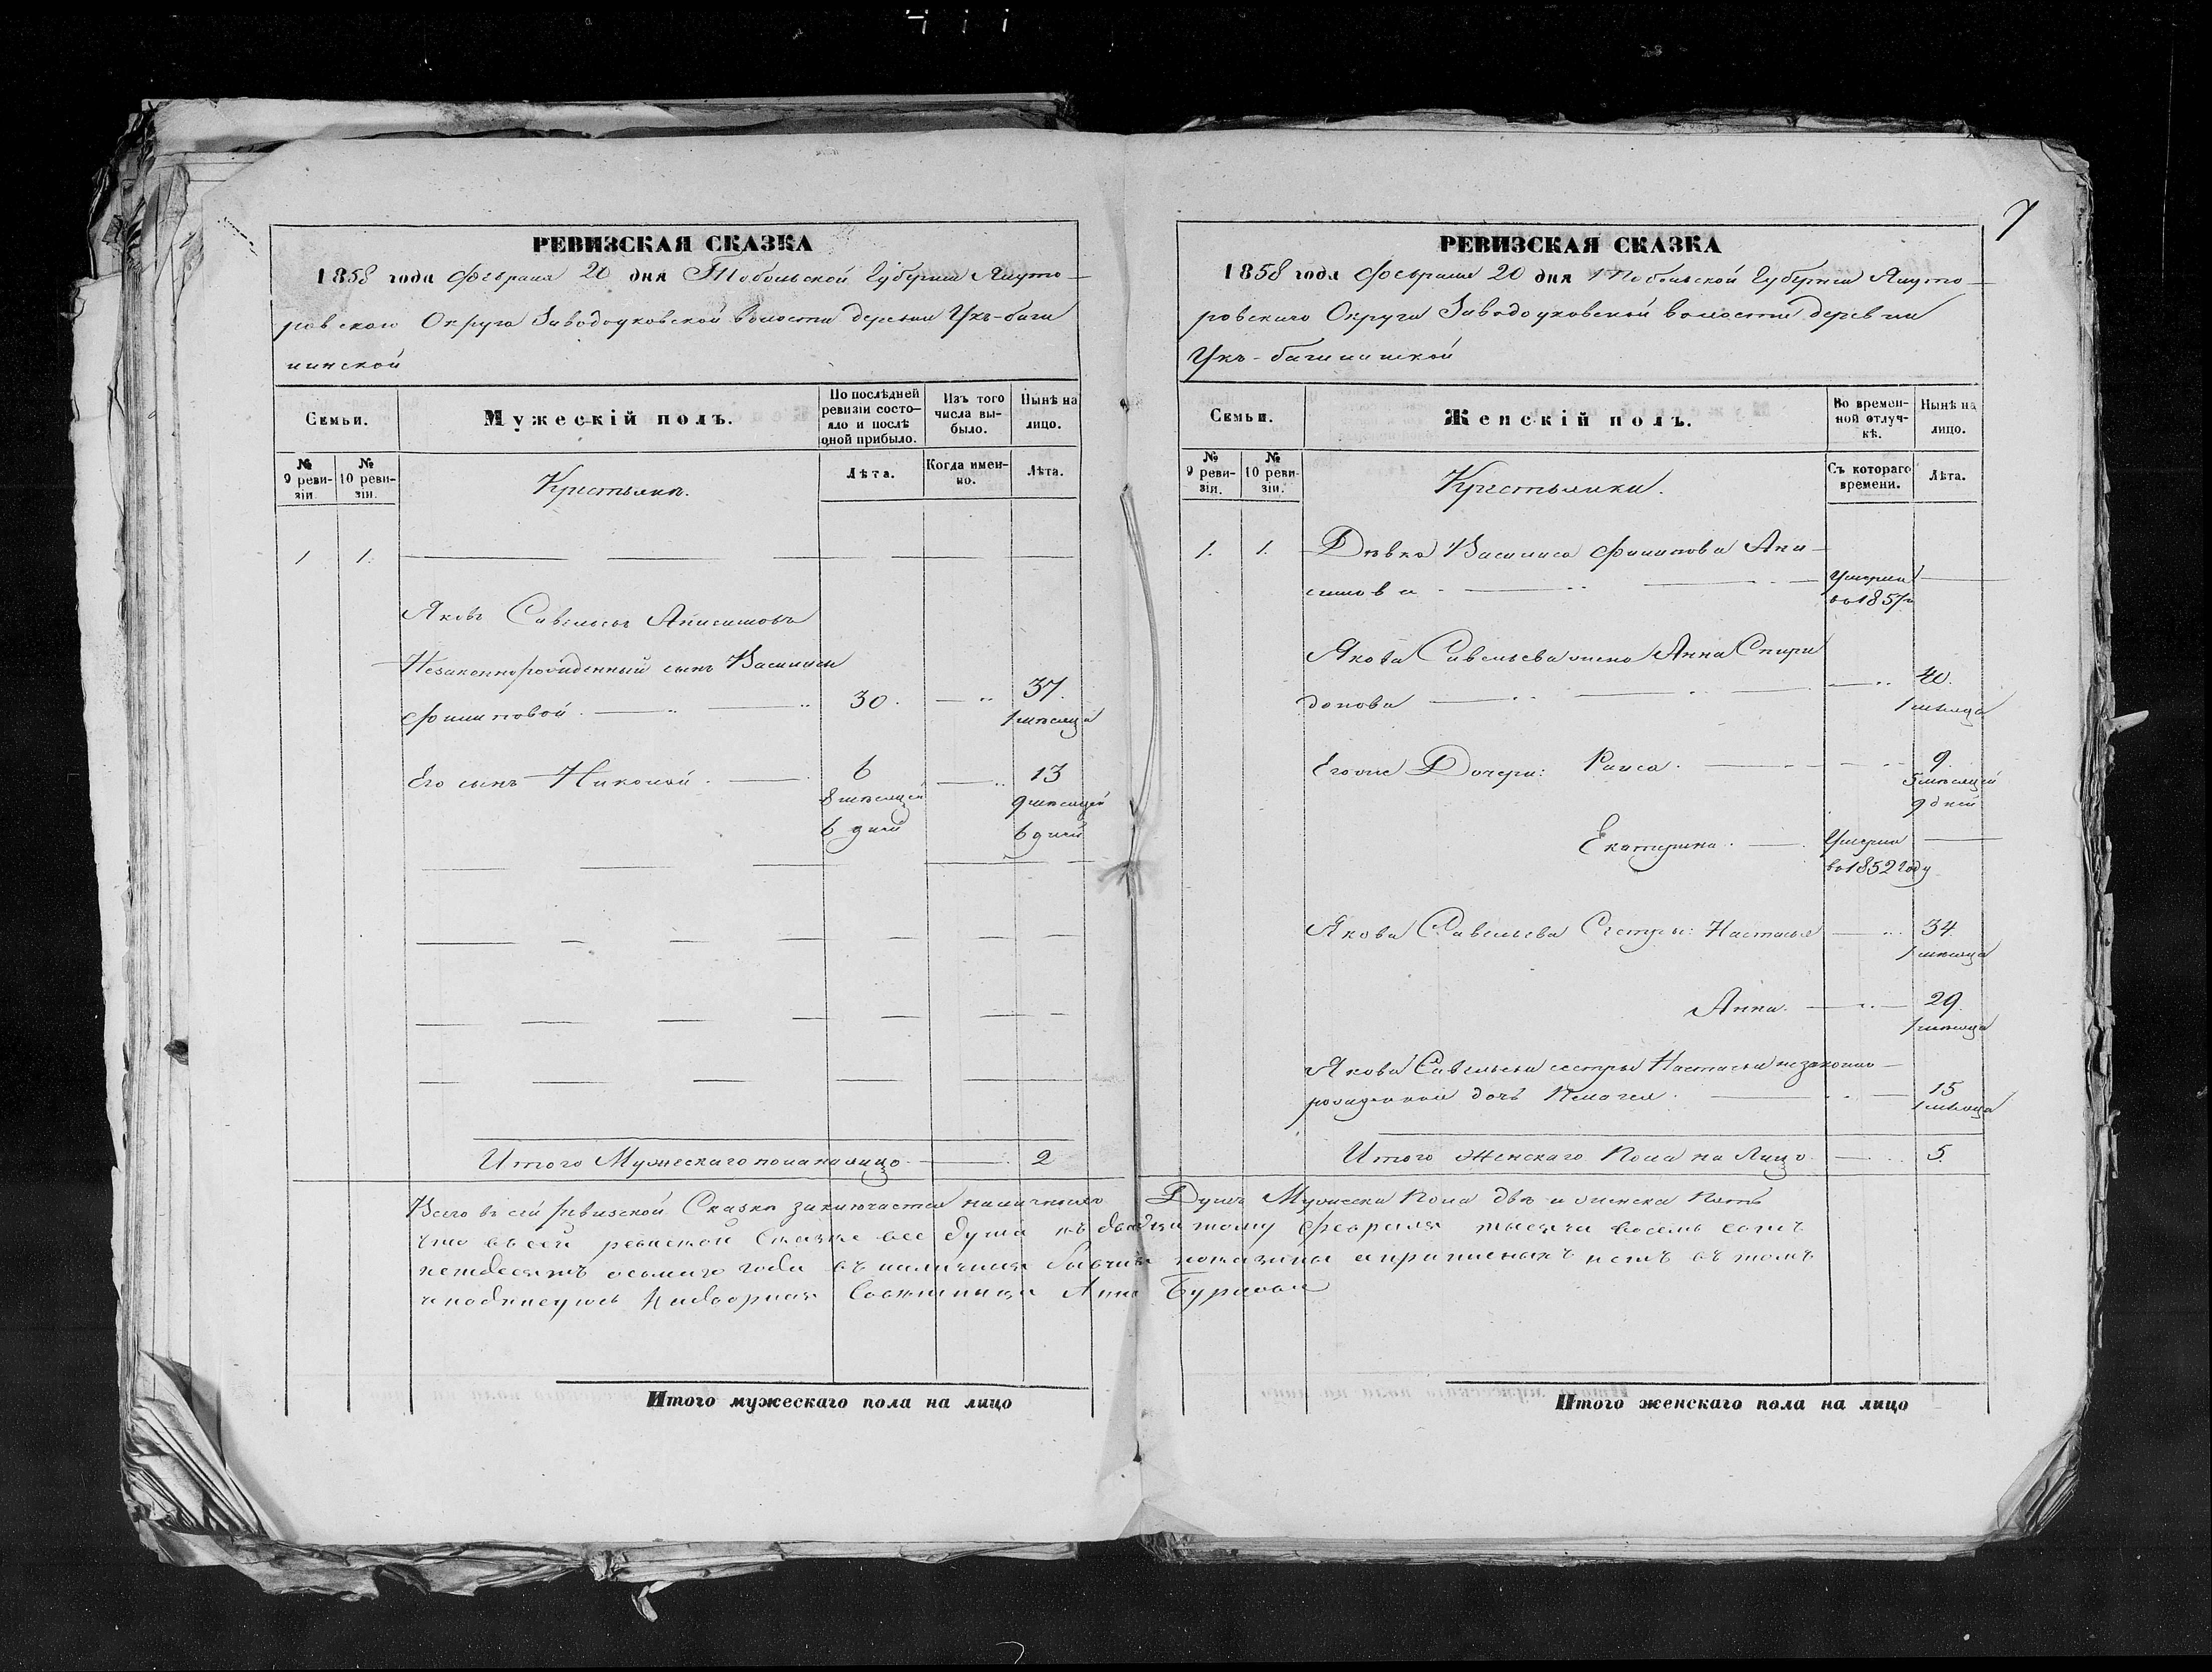 7
РЕВИЗСКАЯ СКАЗКА
1858 года Февраля 20 дня Тобольской Губернiи Ялуто-
ровскаго Округа Заводоуковской волости деревни Укъ-баги
нинской
Семьи.
Мужескій полъ.
По послѣдней ревизіи состо-
яло и послѣ оной прибыло.
Изъ того числа вы-
было.
Нынѣ на лицо.
№ 9 реви-
зіи.
№ 10 реви-
зіи.
Крестьяне.
Лѣта.
Когда имен-
но.
Лѣта.
1 1.
Яковъ Савельевъ Анисимовъ
Незаконнорожденный сынъ Василисы
Филиповой. 30. 37.
1 мѣсяца
Его сынъ Николай. 6 13
8 мѣсяцей 9 мѣсяцей
6 дней 6 дней
Итого Мужескаго пола на лицо. 2
РЕВИЗСКАЯ СКАЗКА
1858 года Февраля 20 дня Тобольской Губернiи Ялуто-
ровскаго Округа Заводоуковской волости деревни
Укъ-багининской
Семьи.
Женскій полъ.
Во времен-
ной отлуч-
кѣ.
Нынѣ на лицо.
№ 9 реви-
зіи.
№ 10 реви-
зіи.
Крестьянки.
Съ котораго времени.
Лѣта.
1. 1. Дѣвка Василиса Филипова Ани-
симова Умерла
во 1857 г
Якова Савельева жена Анна Спири
донова 40.
1 мѣсяца
Его же Дочери: Раиса. 9.
5 мѣсяцей
9 дней
Екатерина. Умерла
во 1852 году
Якова Савельева Сестры: Настасья 34
1 мѣсяца
Анна. 29.
1 мѣсяца
Якова Савельева сестры Настасьи незаконно-
рожденная дочь Пелагея. 15
1 мѣсяца
Итого Женскаго Пола на Лицо. 5.
Всего въ сей ревизской Сказкѣ заключается наличныхъ Душъ Мужеска Пола двѣ и женска Пять
что въ сей ревиской Сказке все душа къ двадцатому Февраля тысяча восемь сотъ
петдесятъ осьмаго года въ наличии показаны а приписныхъ нетъ въ томъ
и подписуюсь Надворная Советница Анна
Итого мужескаго пола на лицо
Итого женскаго пола на лицо